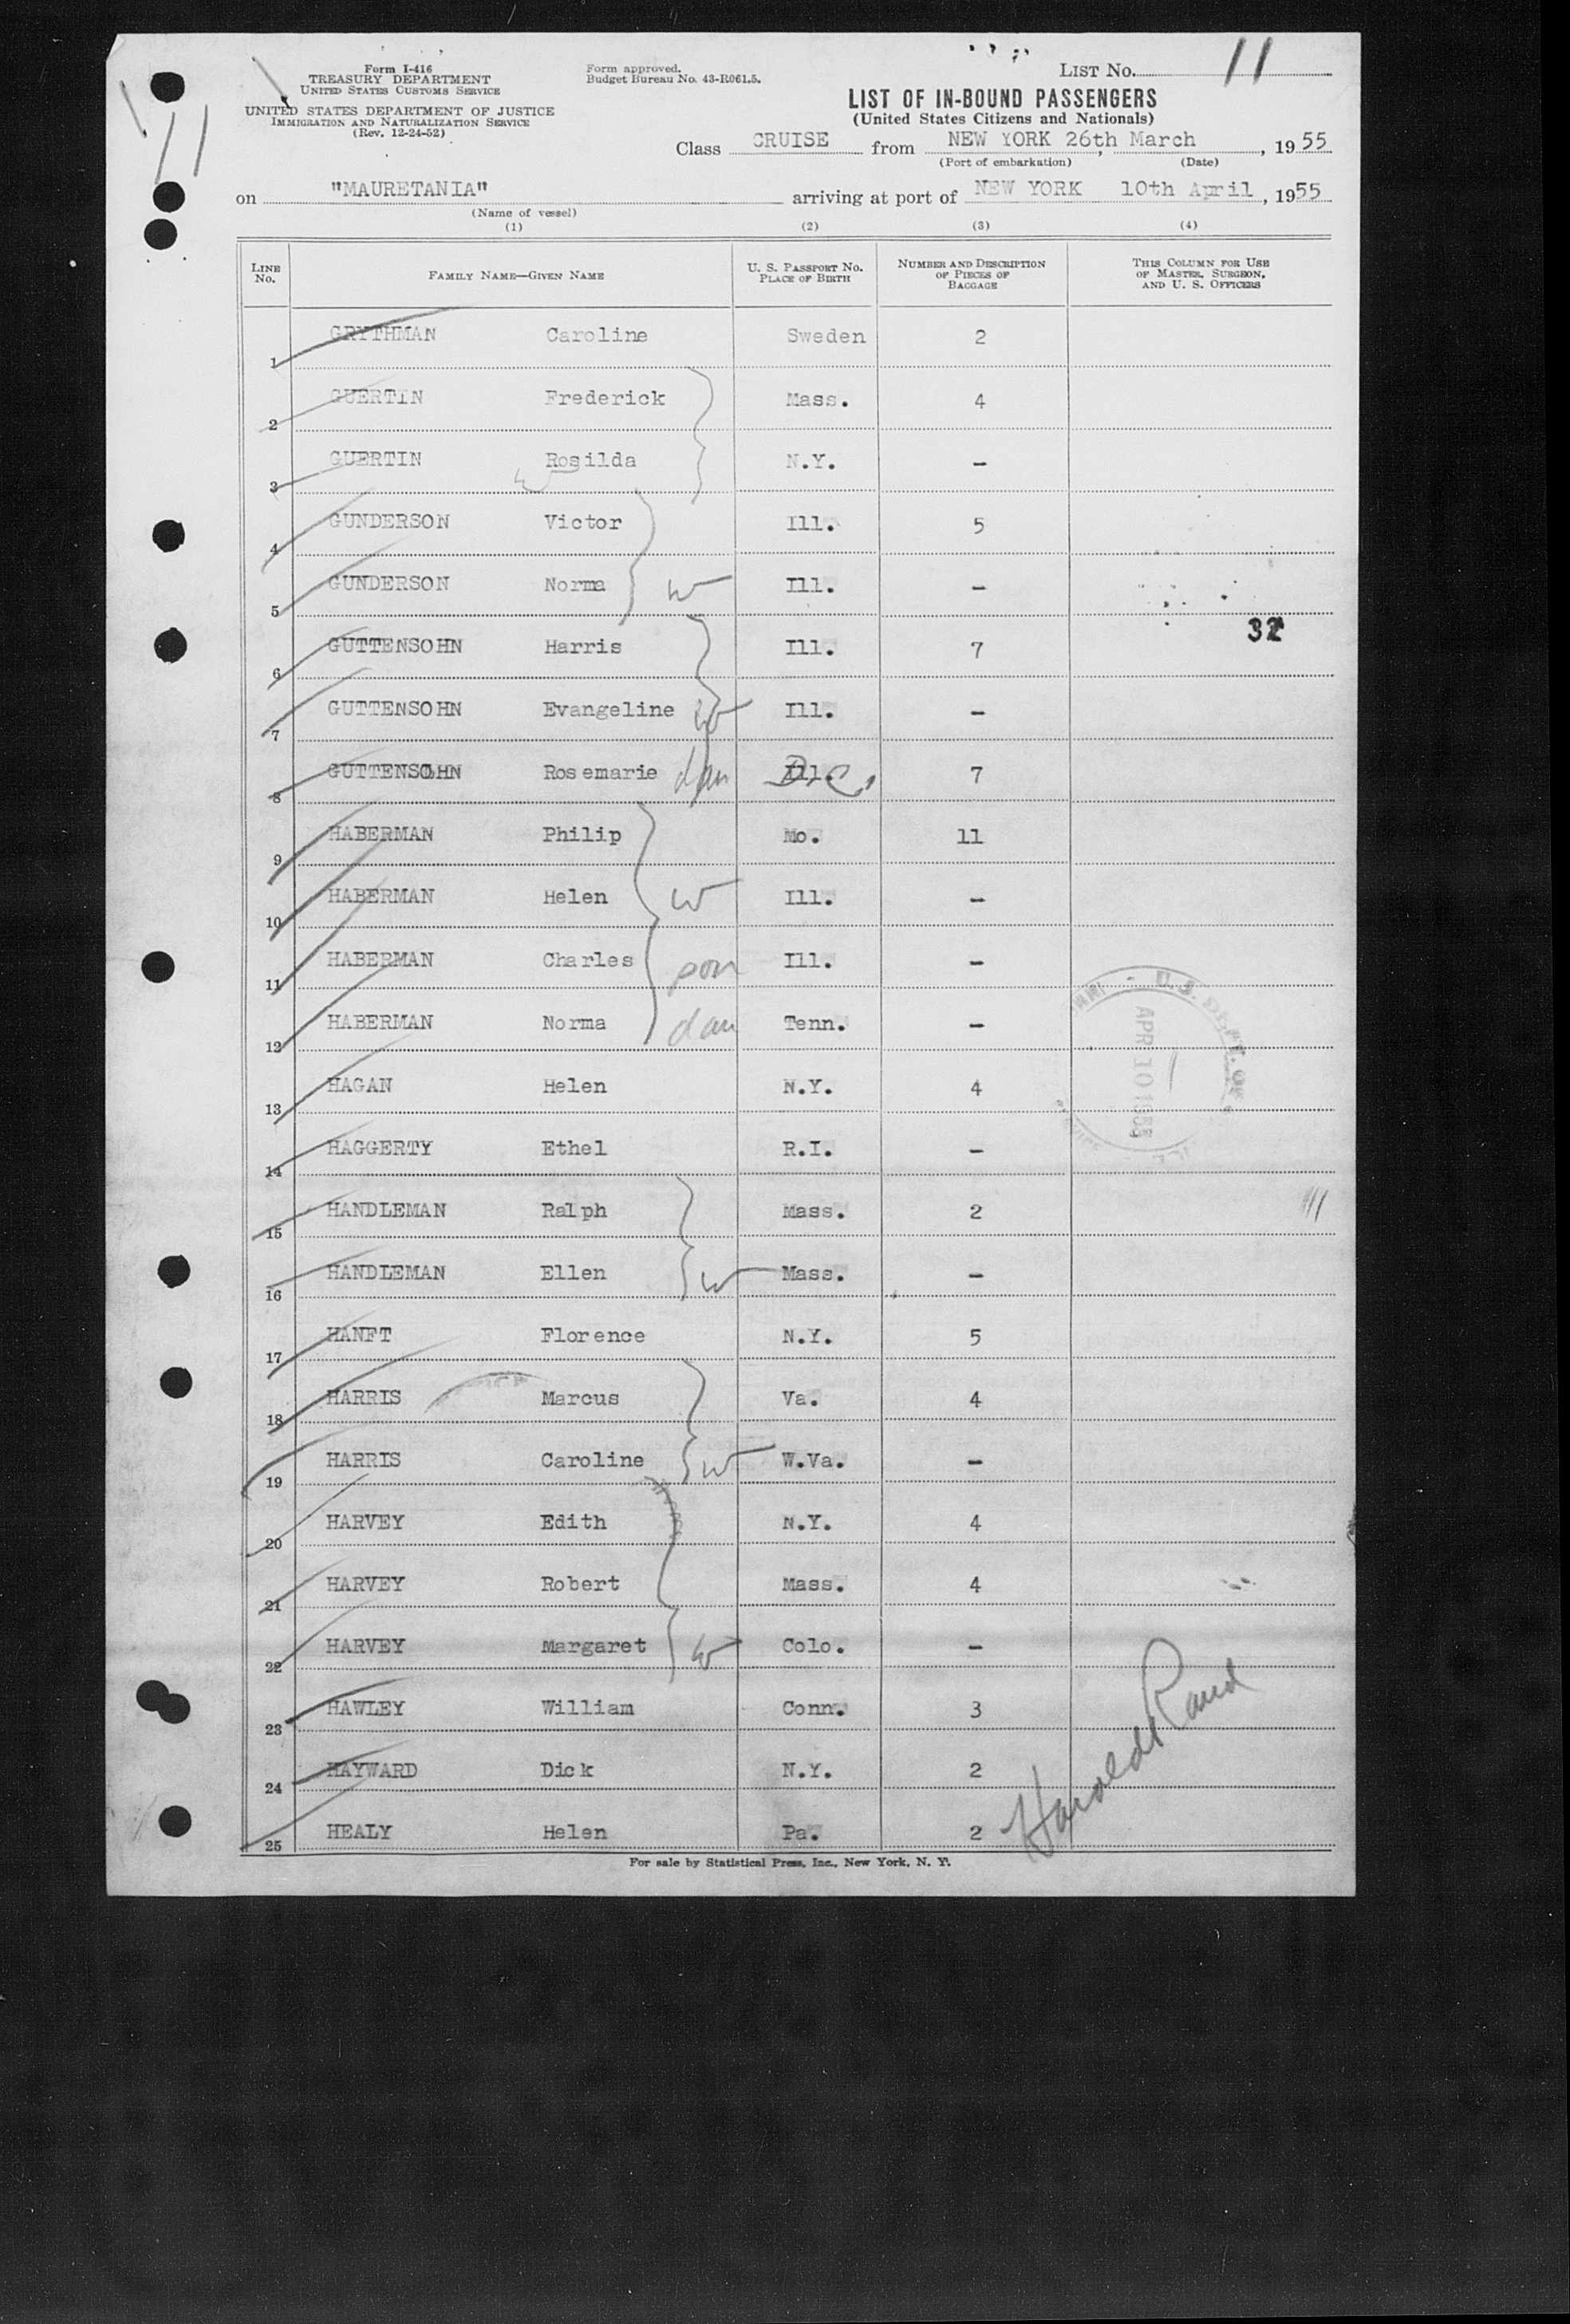 Form I-416
TREASURY DEPARTMENT
UNITED STATES CUSTOMS SERVICE
UNITED STATES DEPARTMENT OF JUSTICE
IMMIGRATION AND NATURALIZATION SERVICE
(Rev. 12-24-52)
11
Form approved.
Budget Bureau No. 43-R061.5.
LIST No. 11
LIST OF IN-BOUND PASSENGERS
(United States Citizens and Nationals)
Class CRUISE from NEW YORK 26th March, 1955
(Port of embarkation) (Date)
on "MAURETANIA" arriving at port of NEW YORK 10th April, 1955
(Name of vessel)
(1) (2) (3) (4)
LINE No. FAMILY NAME—GIVEN NAME U. S. PASSPORT No. PLACE OF BIRTH NUMBER AND DESCRIPTION OF PIECES OF BAGGAGE THIS COLUMN FOR USE OF MASTER, SURGEON, AND U. S. OFFICERS
1 GRYTHMAN Caroline Sweden 2
2 GUERTIN Frederick Mass. 4
3 GUERTIN Rosilda W N.Y. -
4 GUNDERSON Victor Ill. 5
5 GUNDERSON Norma W Ill. -
32
6 GUTTENSOHN Harris Ill. 7
7 GUTTENSOHN Evangeline W Ill. -
8 GUTTENSOHN Rosemarie dau Ill. D.C. 7
9 HABERMAN Philip Mo. 11
10 HABERMAN Helen W Ill. -
11 HABERMAN Charles son Ill. -
12 HABERMAN Norma dau Tenn. -
13 HAGAN Helen N.Y. 4
U.S. DEPT. OF
APR 10 1955
14 HAGGERTY Ethel R.I. -
15 HANDLEMAN Ralph Mass. 2
16 HANDLEMAN Ellen W Mass. -
17 HANFT Florence N.Y. 5
18 HARRIS Marcus Va. 4
19 HARRIS Caroline W W.Va. -
20 HARVEY Edith N.Y. 4
21 HARVEY Robert Mass. 4
22 HARVEY Margaret W Colo. -
23 HAWLEY William Conn. 3
24 HAYWARD Dick N.Y. 2
25 HEALY Helen Pa. 2
Harold Rand
For sale by Statistical Press, Inc., New York, N. Y.